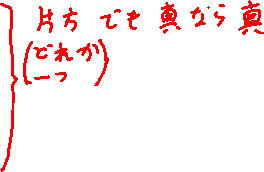 片方でも真なら真
(どれか
一つ)